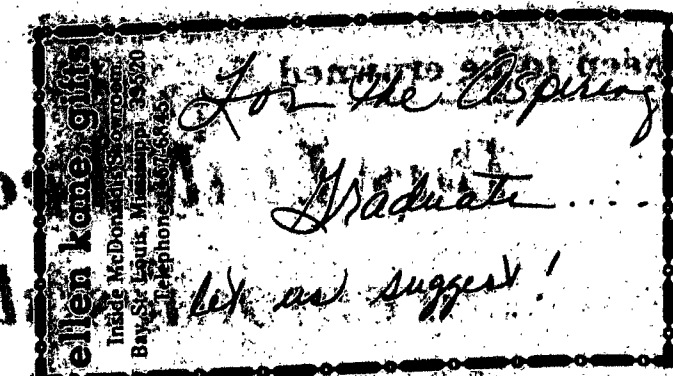 ellen kane gifts
Inside McDonald's Showroom
Bay St. Louis, Mississippi 39520
Telephone 467-6845
For the Aspiring
Graduate.....
let us suggest!